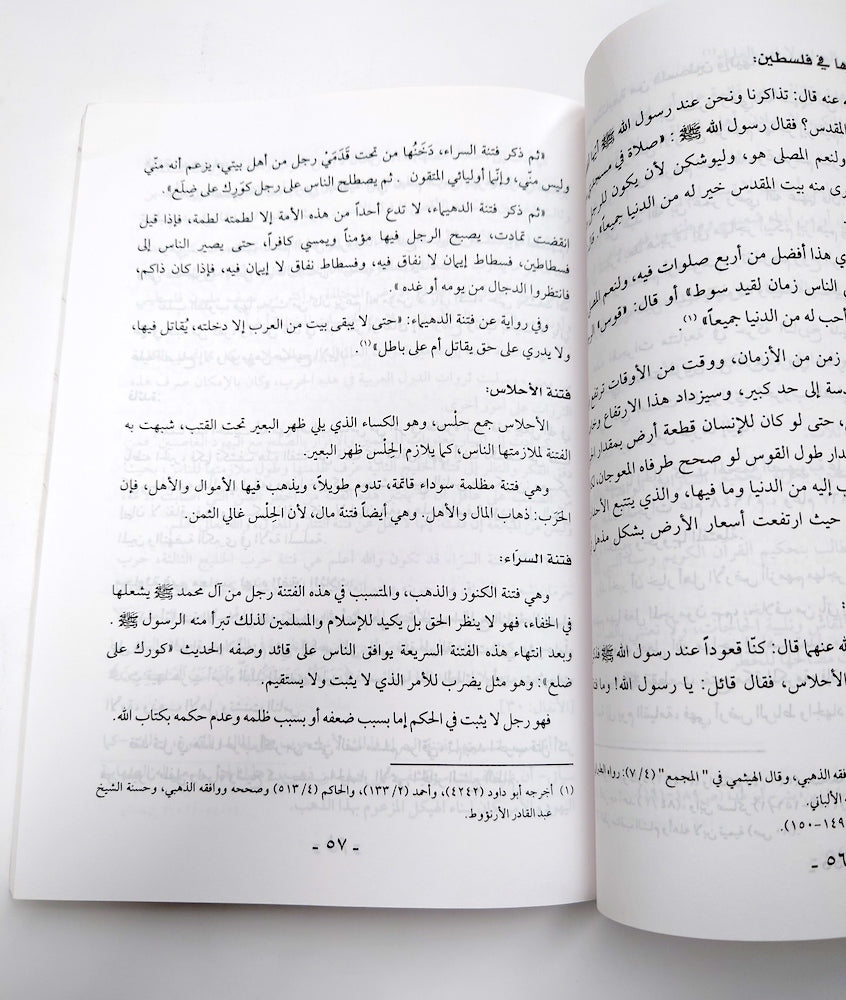 ها في فلسطين:
ه عنه قال: تذاكرنا ونحن عند رسول الله ﷺ أيهما
المقدس؟ فقال رسول الله ﷺ: «صلاة في مسجدي
ولنعم المصلى هو، وليوشكن لأن يكون للرجل
رى منه بيت المقدس خير له من الدنيا جميعاً»
ي هذا أفضل من أربع صلوات فيه، ولنعم المصلى
الناس زمان لقيد سوط» أو قال: «قوس»
أحب له من الدنيا جميعاً» (١).
زمن من الأزمان، ووقت من الأوقات ترتفع
دسة إلى حد كبير، وسيزداد هذا الارتفاع
، حتى لو كان للإنسان قطعة أرض بمقدار
دار طول القوس لو صحح طرفاه المعوجان،
ب إليه من الدنيا وما فيها، والذي يتتبع
حيث ارتفعت أسعار الأرض بشكل مذهل
الله عنهما قال: كنّا قعوداً عند رسول الله ﷺ
الأحلاس، فقال قائل: يا رسول الله! وما
فقه الذهبي، وقال الهيثمي في "المجمع" (٧/٤): رواه
ه الألباني.
١٤٩-١٥٠).
٥٦ -
«ثم ذكر فتنة السراء، دَخَنُها من تحت قَدَمَيْ رجل من أهل بيتي، يزعم أنه منّي
وليس منّي، وإنّما أوليائي المتقون . ثم يصطلح الناس على رجل كوَرِك على ضِلَع».
«ثم ذكر فتنة الدهيماء، لا تدع أحداً من هذه الأمة إلا لطمته لطمة، فإذا قيل
انقضت تمادت، يصبح الرجل فيها مؤمناً ويمسي كافراً، حتى يصير الناس إلى
فسطاطين، فسطاط إيمان لا نفاق فيه، وفسطاط نفاق لا إيمان فيه، فإذا كان ذاكم،
فانتظروا الدجال من يومه أو غده».
وفي رواية عن فتنة الدهيماء: «حتى لا يبقى بيت من العرب إلا دخلته، يُقاتل فيها،
ولا يدري على حق يقاتل أم على باطل»(١).
فتنة الأحلاس:
الأحلاس جمع حلْس، وهو الكساء الذي يلي ظهر البعير تحت القتب، شبهت به
الفتنة لملازمتها الناس، كما يلازم الحِلْس ظهر البعير.
وهي فتنة مظلمة سوداء قاتمة، تدوم طويلاً، ويذهب فيها الأموال والأهل، فإن
الحَرَب: ذهاب المال والأهل. وهي أيضاً فتنة مال، لأن الحِلْس غالي الثمن.
فتنة السرّاء:
وهي فتنة الكنوز والذهب، والمتسبب في هذه الفتنة رجل من آل محمد ﷺ يشعلها
في الخفاء، فهو لا ينظر الحق بل يكيد للإسلام والمسلمين لذلك تبرأ منه الرسول ﷺ .
وبعد انتهاء هذه الفتنة السريعة يوافق الناس على قائد وصفه الحديث «كورك على
ضلع»: وهو مثل يضرب للأمر الذي لا يثبت ولا يستقيم.
فهو رجل لا يثبت في الحكم إما بسبب ضعفه أو بسبب ظلمه وعدم حكمه بكتاب الله.
(١) أخرجه أبو داود (٤٢٤٢)، وأحمد (٢/ ١٣٣)، والحاكم (٤/ ٥١٣) وصححه ووافقه الذهبي، وحسنة الشيخ
عبد القادر الأرنؤوط.
- ٥٧ -